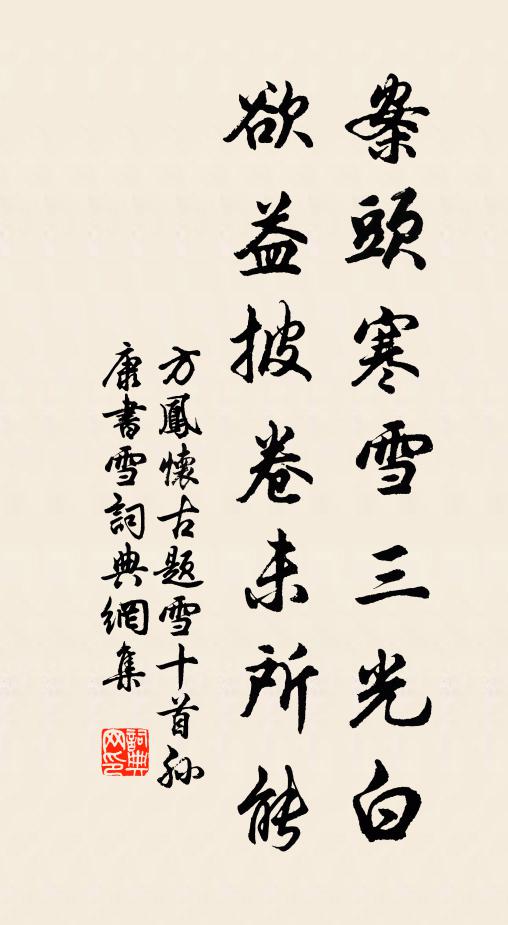 案頭寒雪三光白
欲益披卷未所能
方鳳懷古题雪十首孙
康書雪詞典網集
詞典
网印